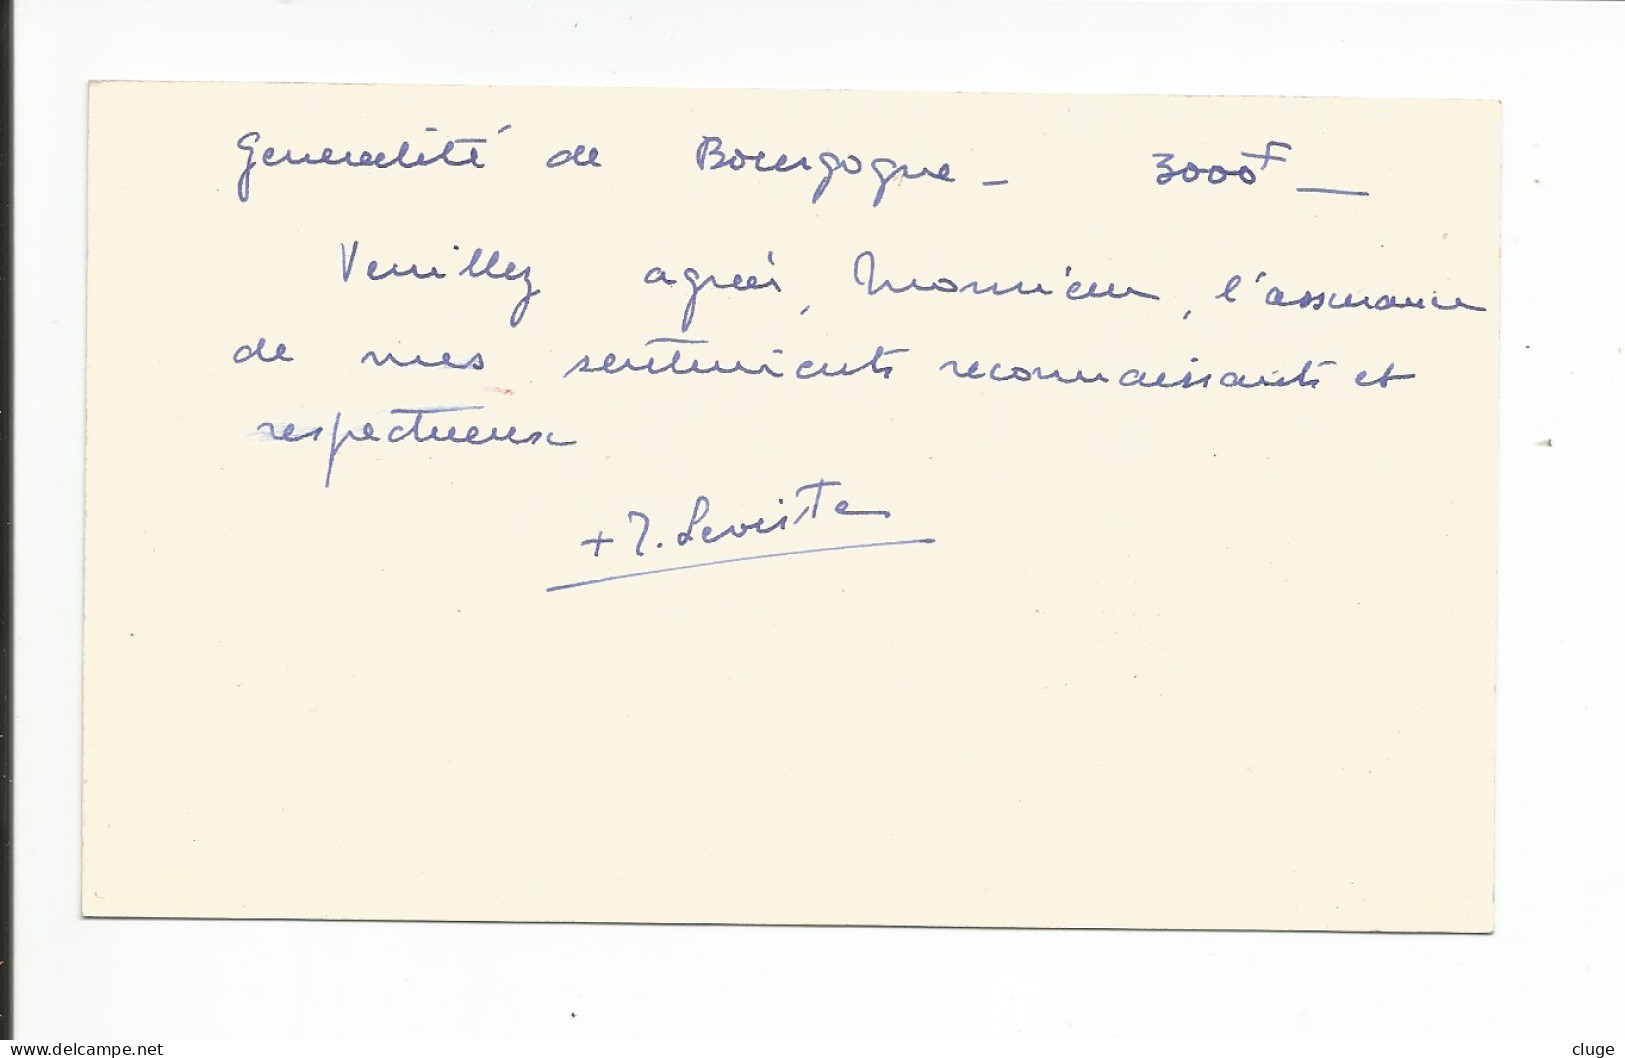 Generalité de Bourgogne - 3000F —
Veuillez agréer, Monsieur, l'assurance
de mes sentiments reconnaissants et
respectueux
+ J. Leviste
www.delcampe.net
cluge